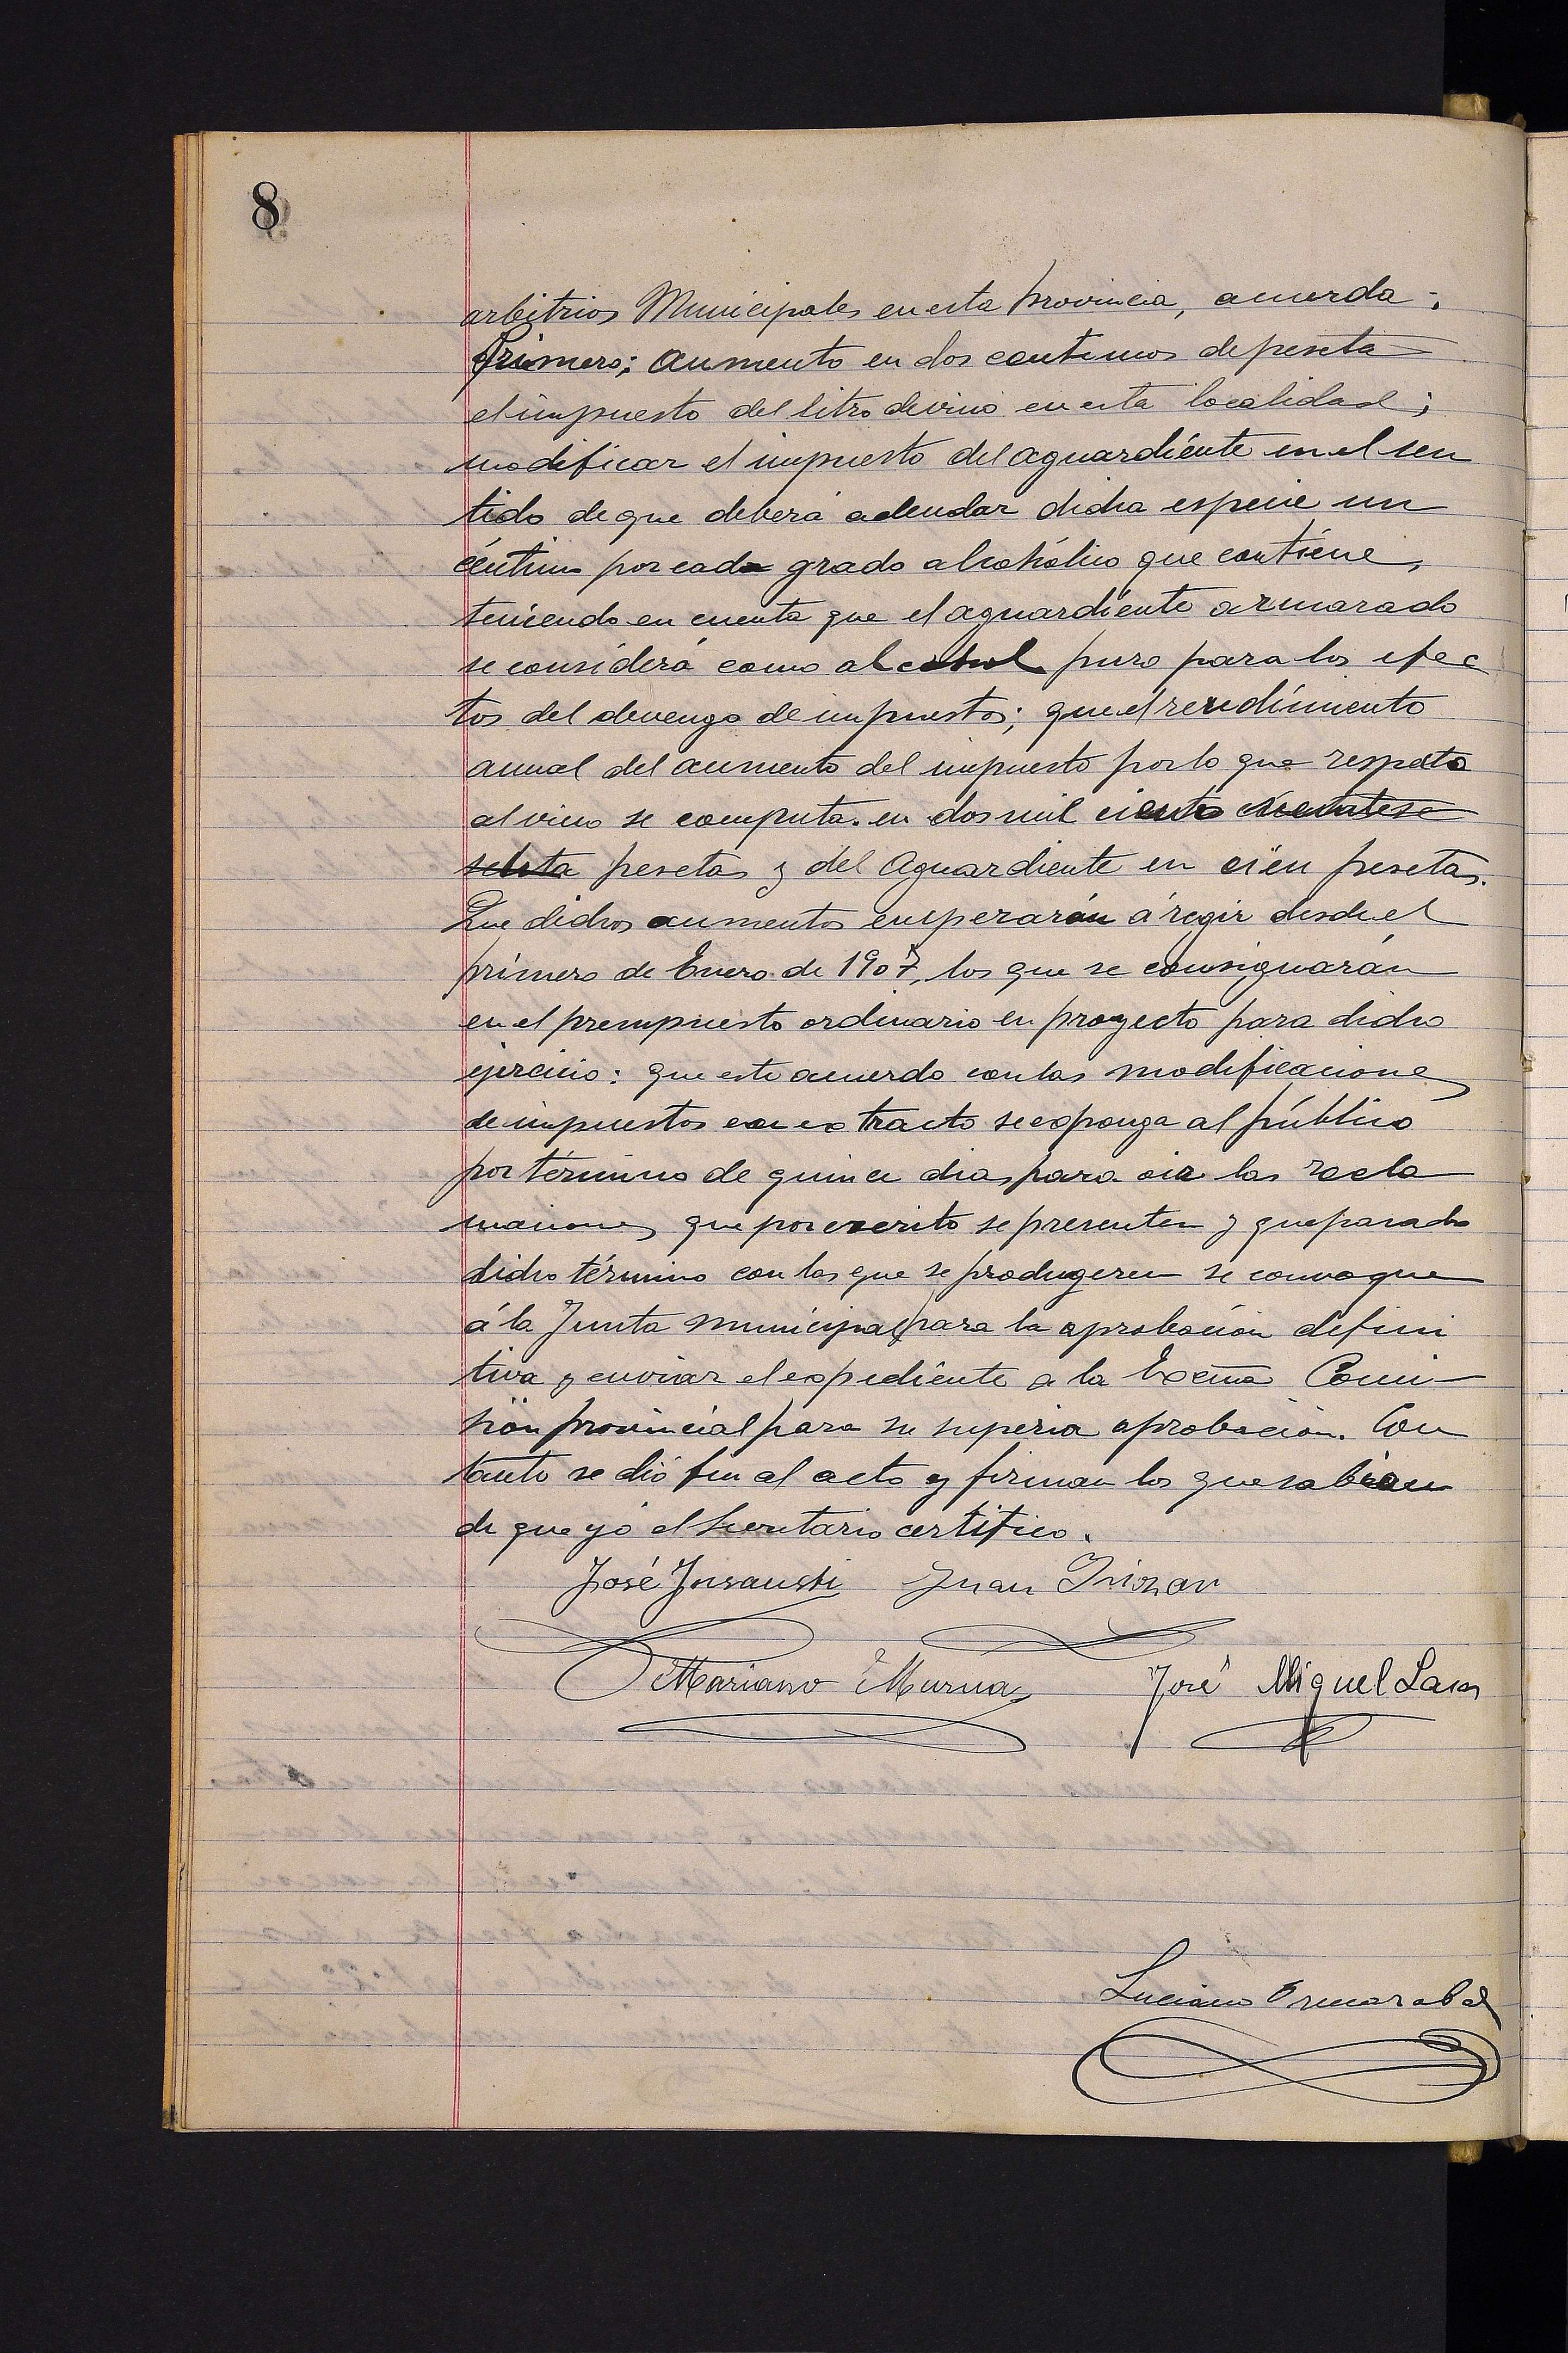 8
arbitrios Municipales en esta provincia, acuerda:
Primero; aumento en dos centimos de peseta
el impuesto del litro de vino en esta localidad;
modificar el impuesto del aguardiente en el sen
tido de que deberá adeudar dicha especie un
céntimo por cada grado alcohólico que contiene,
teniendo en cuenta que el aguardiente
se considerá como alcohol puro para los efec
tos del devengo de impuestos; que el rendimiento
anual del aumento del impuesto por lo que respeta
al vino se computa en dos mil ciento
pesetas y del Aguardiente en cien pesetas.
Que dichos aumentos emperarán á regir desde el
primero de Enero de 1907, los que se consignarán
en el presupuesto ordinario en proyecto para dicho
ejercicio: que este acuerdo con las modificaciones
de impuestos en extracto se exponga al público
por término de quince dias para oir las recla
maciones que por escrito se presenten y que pasado
dicho término con las que se produgeren se convoque
á la Junta municipal para la aprobación defini
tiva y enviar el expediente a la Excma Comi
sión provincial para su superior aprobación. Con
tanto se dió fin al acto y firman los que sabian
de que yo el Secretario certifico.
José Insausti Juan Irizar
Mariano Murua José Miguel Lasa
Luciano Ormazabal